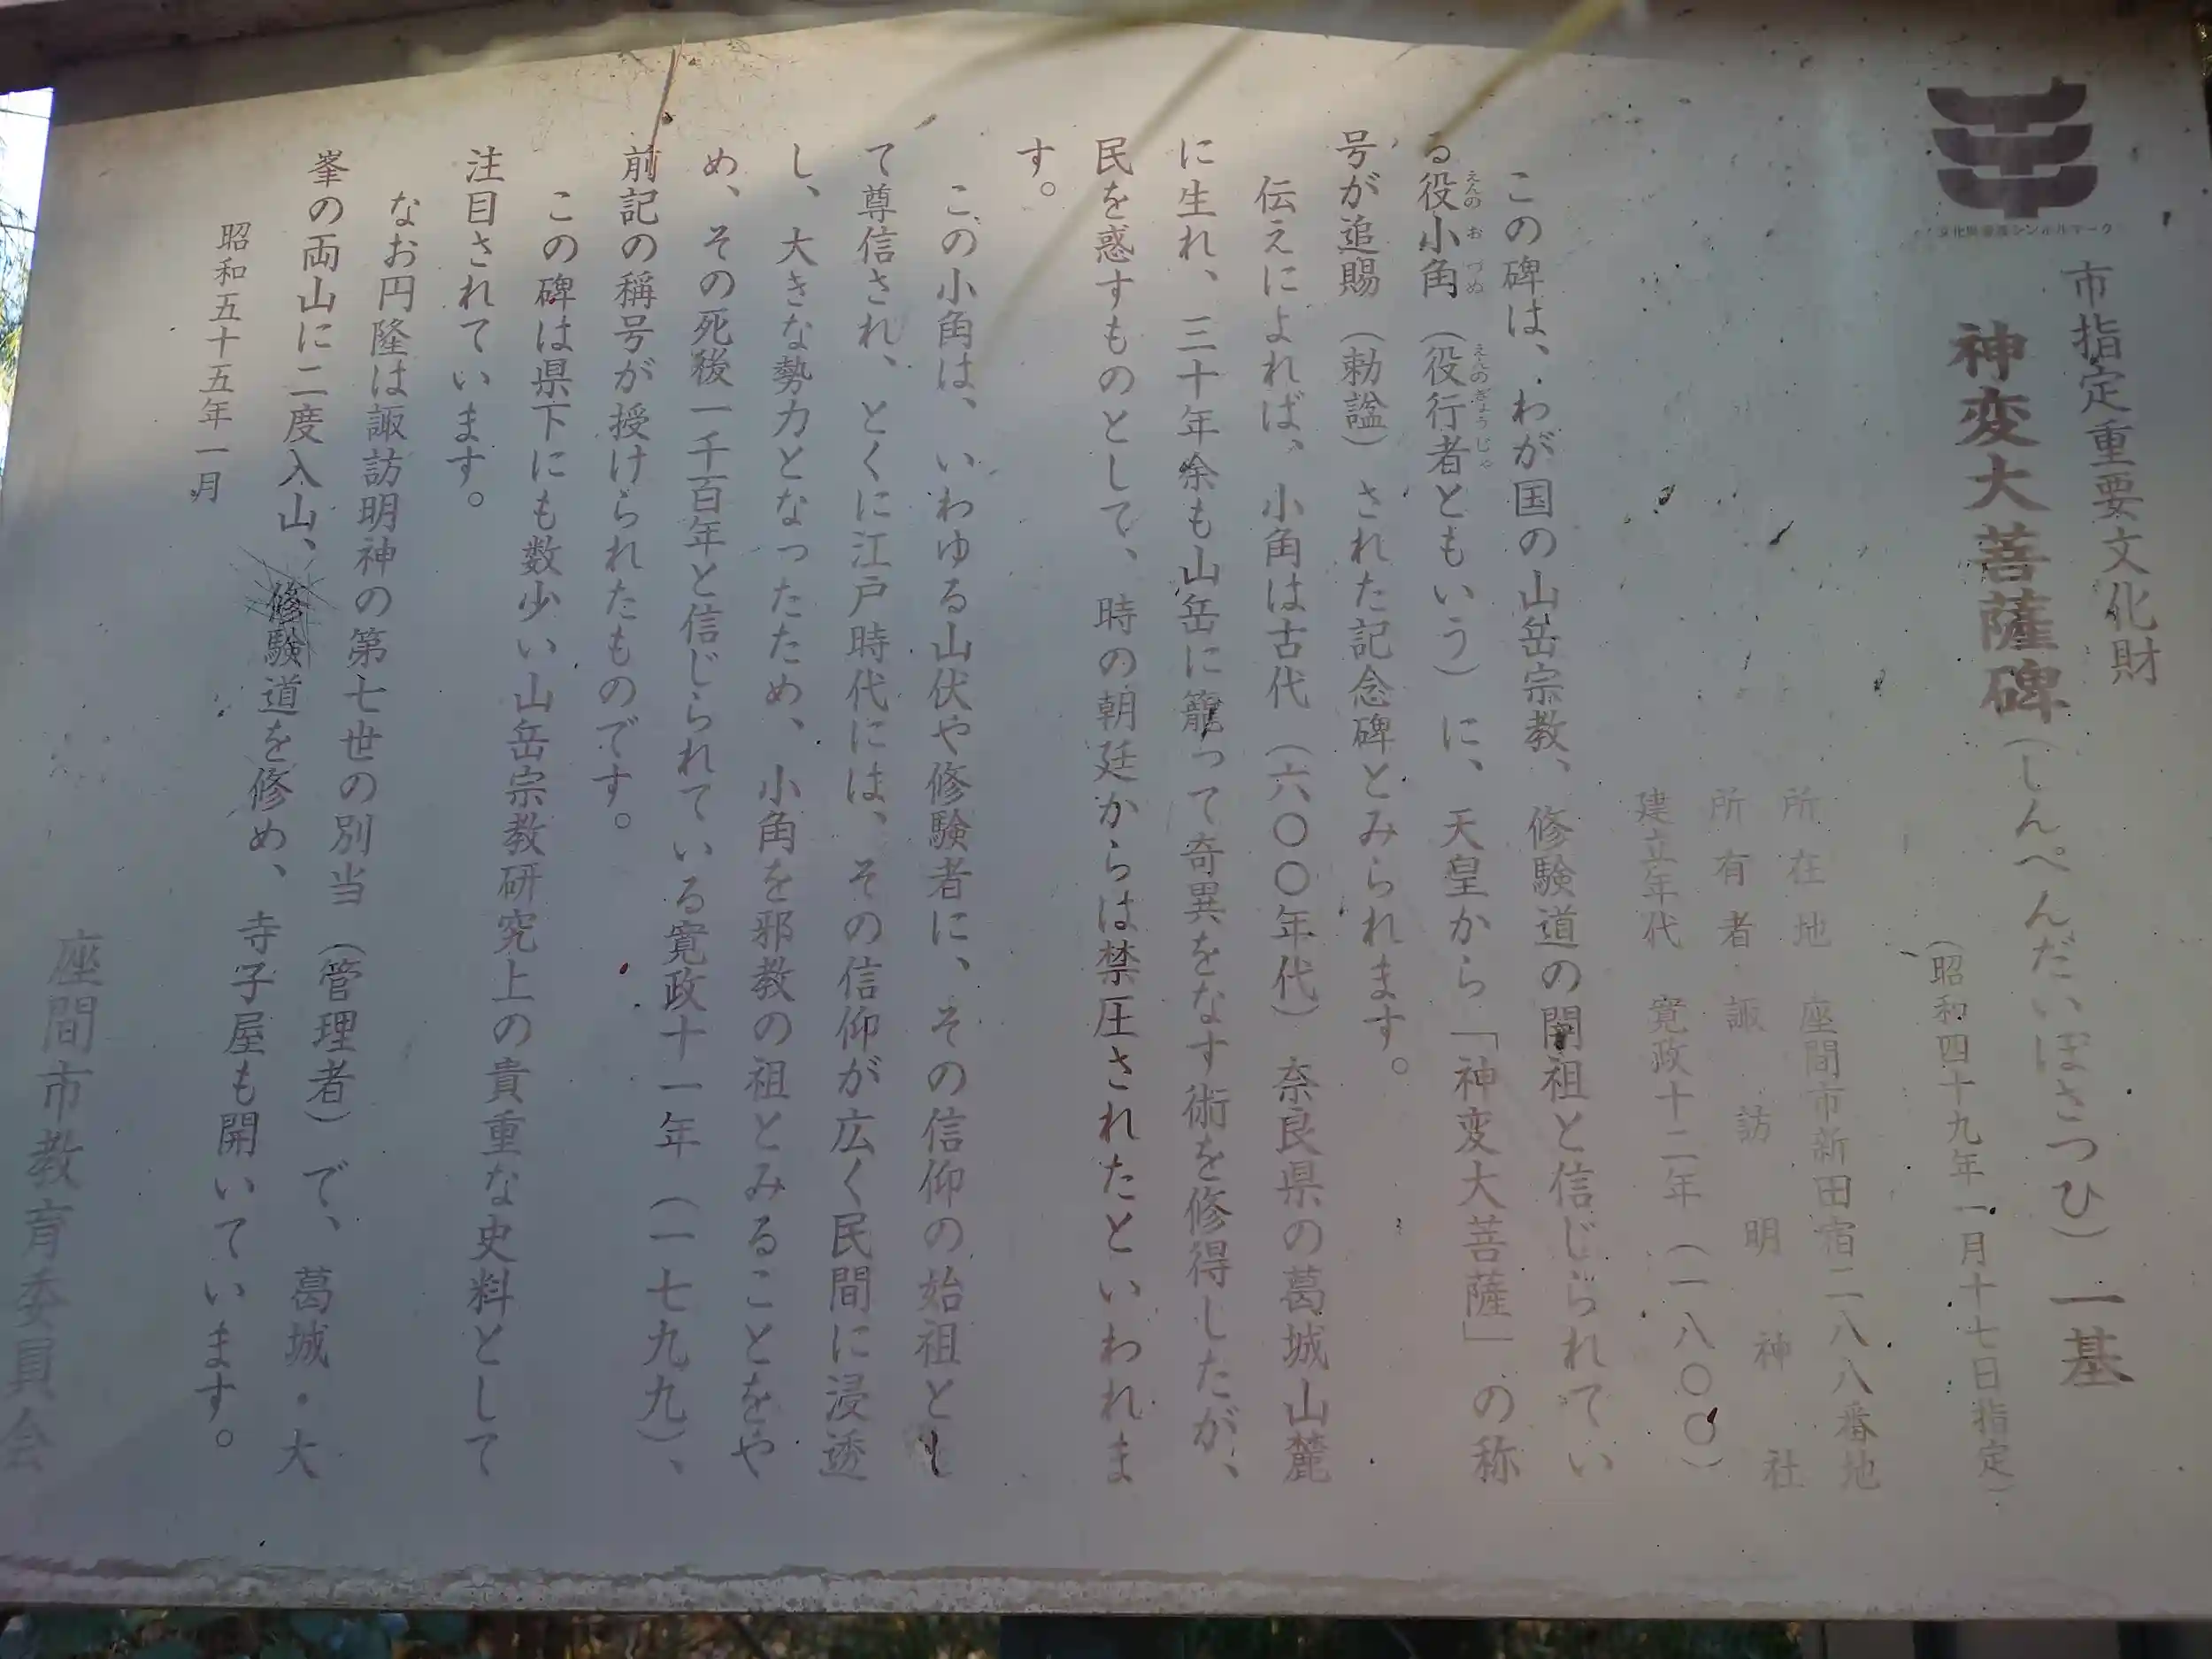 文化財愛護シンボルマーク
市指定重要文化財
神変大菩薩碑(しんぺんだいぼさつひ)一基
(昭和四十九年一月十七日指定)
所在地 座間市新田宿二八八番地
所有者 諏訪明神社
建立年代 寛政十二年(一八〇〇)
この碑は、わが国の山岳宗教、修験道の開祖と信じられてい
る役小角(役行者ともいう)に、天皇から「神変大菩薩」の称
えんの お づぬ えんのぎょうじゃ
号が追賜(勅諡)された記念碑とみられます。
伝えによれば、小角は古代(六〇〇年代)奈良県の葛城山麓
に生れ、三十年余も山岳に籠って奇異をなす術を修得したが、
民を惑すものとして、時の朝廷からは禁圧されたといわれま
す。
この小角は、いわゆる山伏や修験者に、その信仰の始祖とし
て尊信され、とくに江戸時代には、その信仰が広く民間に浸透
し、大きな勢力となったため、小角を邪教の祖とみることをや
め、その死後一千百年と信じられている寛政十一年(一七九九)、
前記の稱号が授けられたものです。
この碑は県下にも数少い山岳宗教研究上の貴重な史料として
注目されています。
なお円隆は諏訪明神の第七世の別当(管理者)で、葛城・大
峯の両山に二度入山、修験道を修め、寺子屋も開いています。
昭和五十五年一月
座間市教育委員会